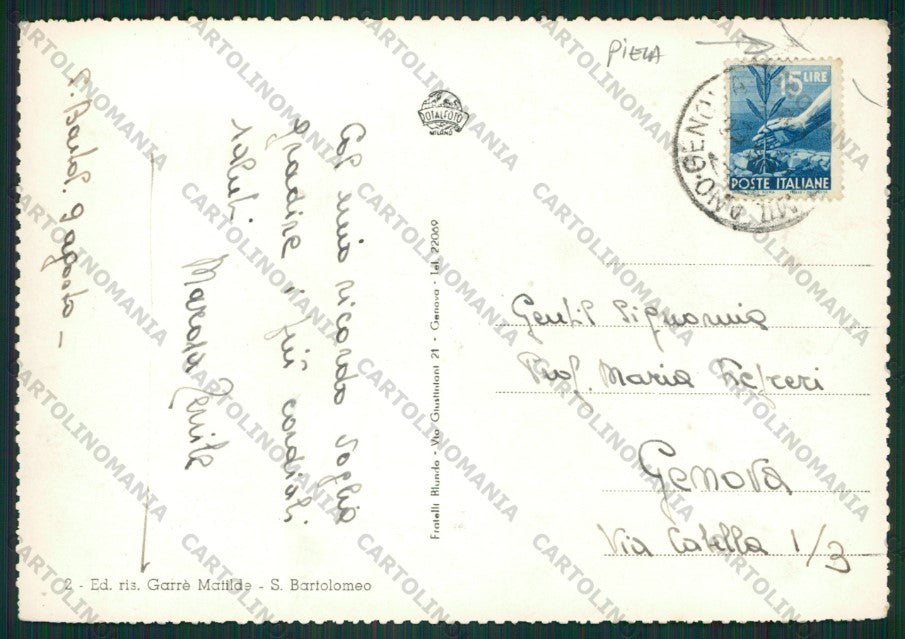 PIEGA
15 LIRE
POSTE ITALIANE
MILANO·GENOVA
TOTALFOTO
MILANO
S. Bartol. 9 agosto –
Col mio ricordo voglia
gradire i più cordiali
saluti
Gentil Signorina
Prof. Maria
Genova
Via 1/3
Fratelli Blundo - Via Giustiniani 21 - Genova - Tel. 22069
2 - Ed. ris. Garrè Matilde - S. Bartolomeo
CARTOLINOMANIA